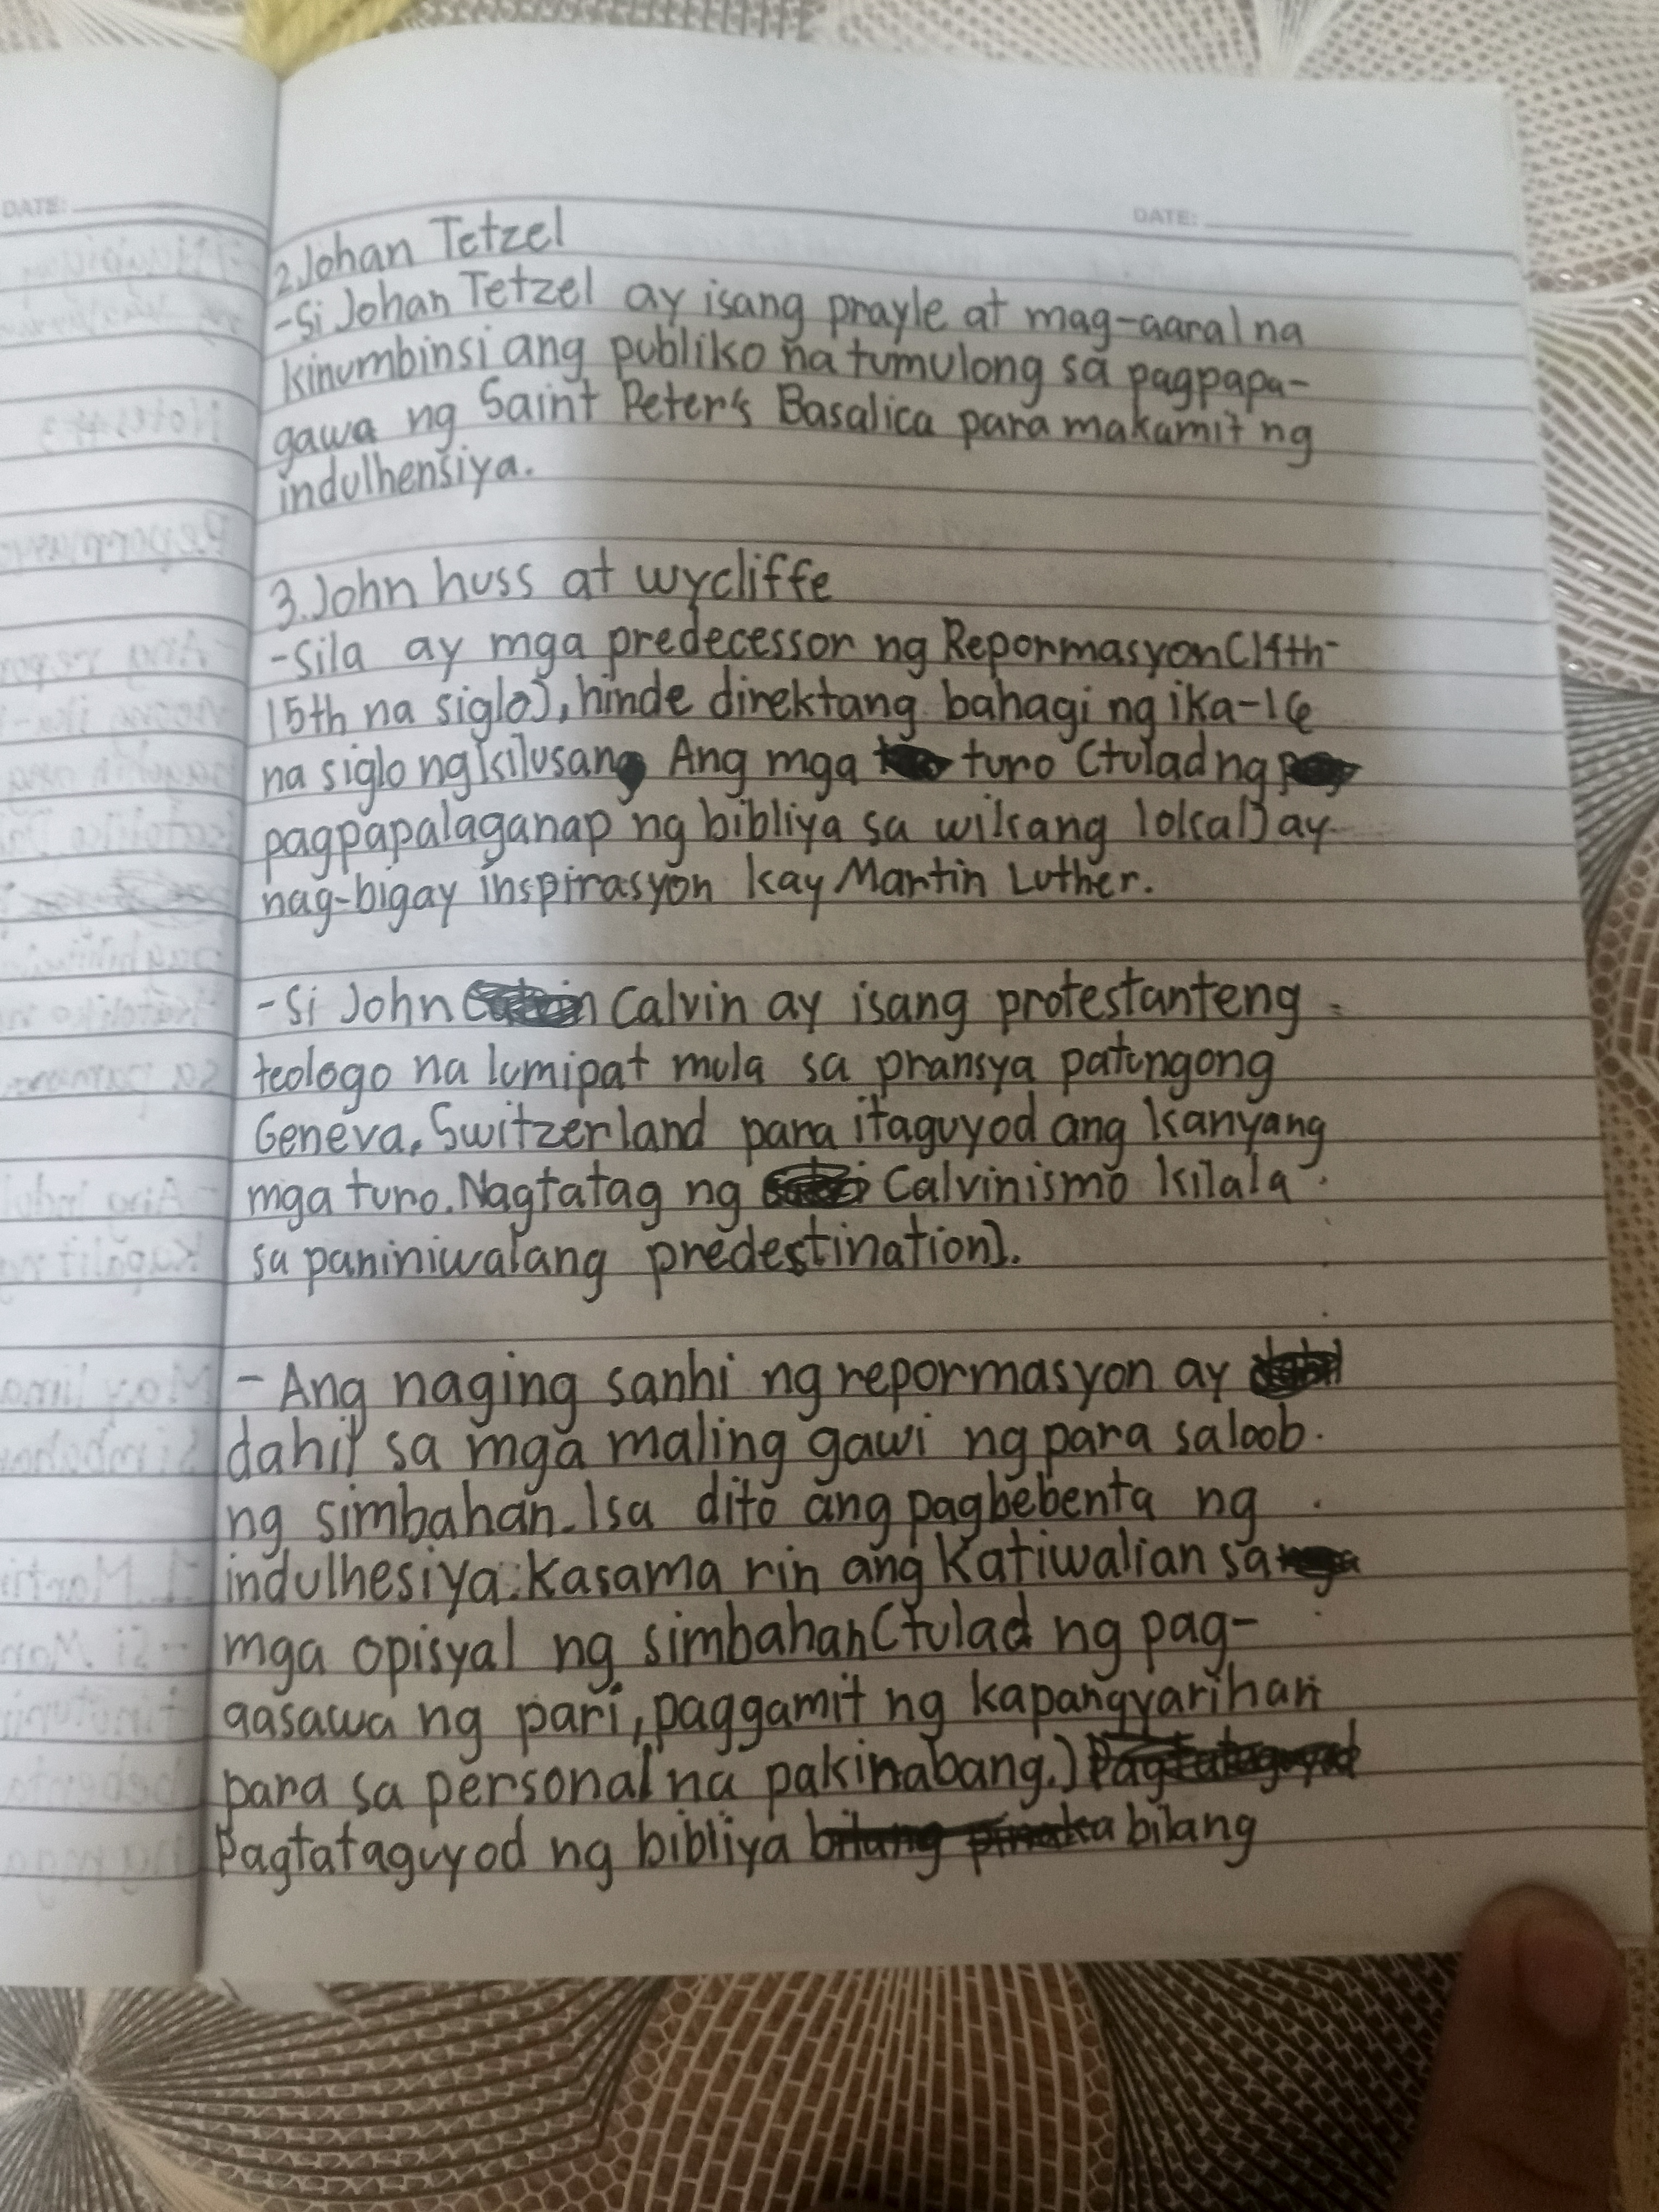 DATE:
DATE:
2. Johan Tetzel
-Si Johan Tetzel ay isang prayle at mag-aaral na
kinumbinsi ang publiko na tumulong sa pagpapa-
gawa ng Saint Peter's Basalica para makamit ng
indulhensiya.
3. John huss at wycliffe
-Sila ay mga predecessor ng Repormasyon (14th-
15th na siglo), hinde direktang bahagi ng ika-16
na siglo ng kilusang Ang mga turo (tulad ng
pagpapalaganap ng bibliya sa wikang lokal) ay
nag-bigay inspirasyon kay Martin Luther.
-Si John Calvin ay isang protestanteng
teologo na lumipat mula sa pransya patungong
Geneva, Switzerland para itaguyod ang kanyang
mga turo. Nagtatag ng Calvinismo kilala
sa paniniwalang predestination).
- Ang naging sanhi ng repormasyon ay
dahil sa mga maling gawi ng para saloob
ng simbahan. Isa dito ang pagbebenta ng
indulhesiya. Kasama rin ang Katiwalian sa
mga opisyal ng simbahan (tulad ng pag-
aasawa ng pari, paggamit ng kapangyarihan
para sa personal na pakinabang.)
Pagtataguyod ng bibliya bilang